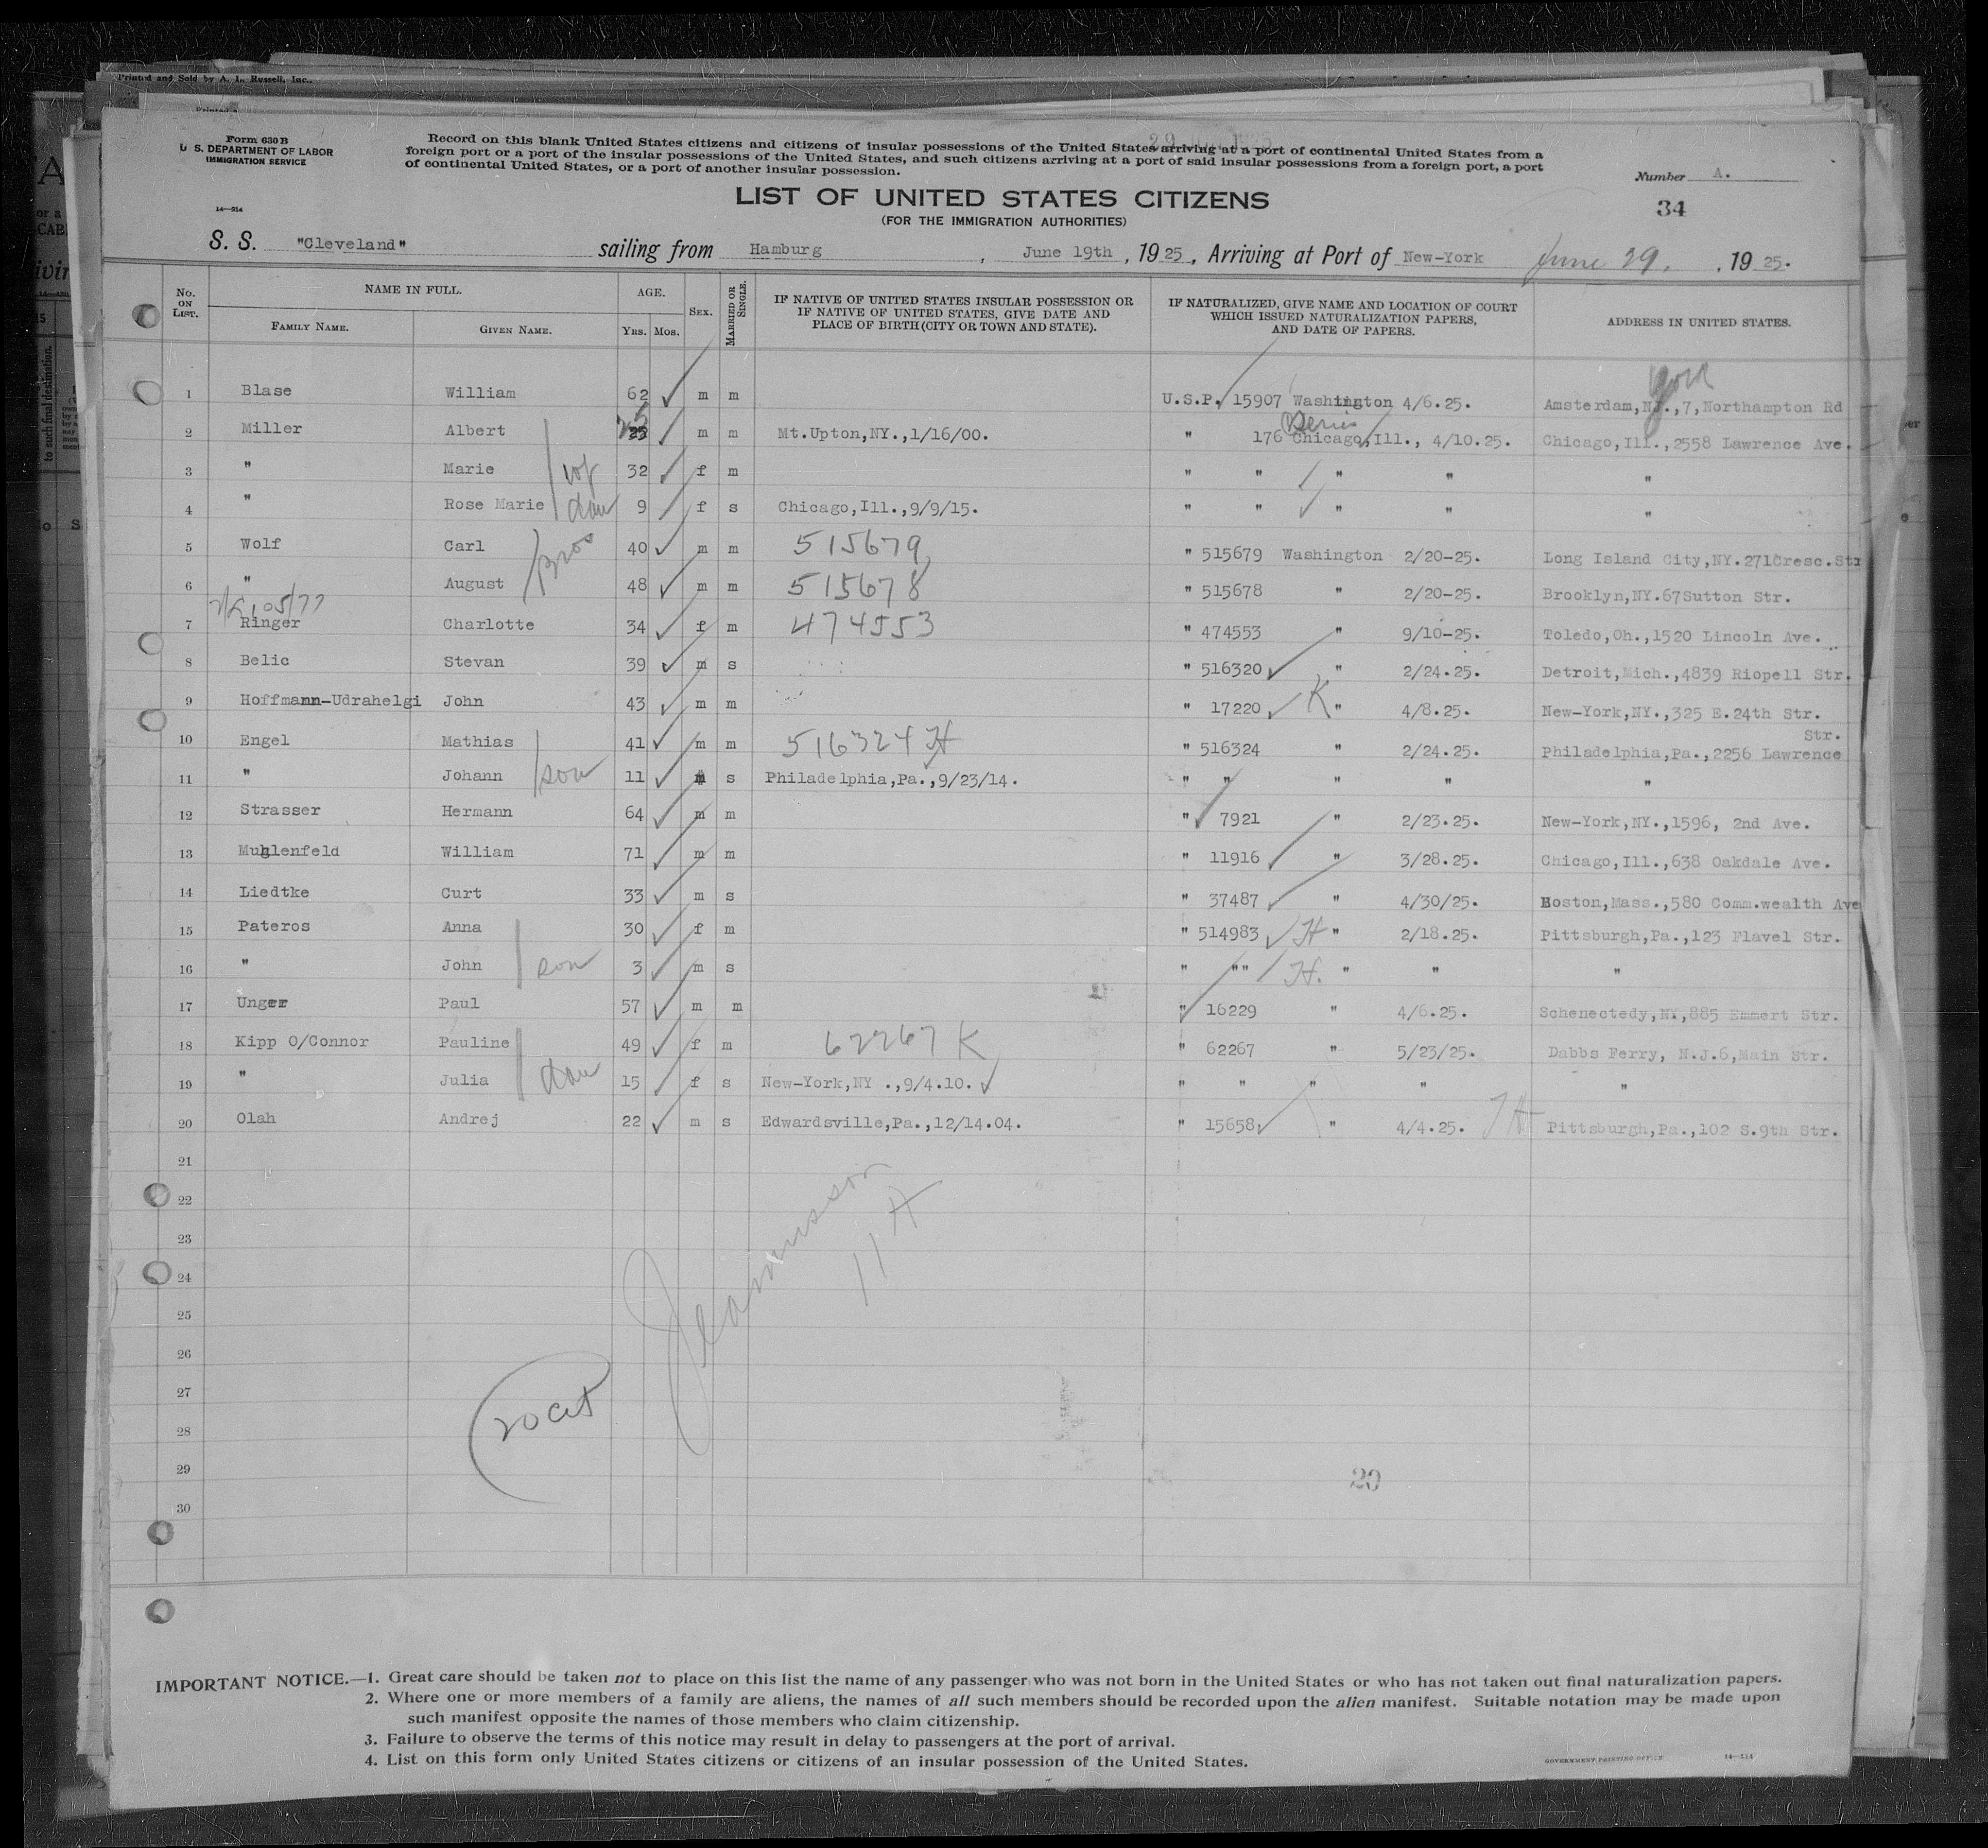 Printed and Sold by A. L. Russell, Inc.,
Form 630 B
U. S. DEPARTMENT OF LABOR
IMMIGRATION SERVICE
14—214
Record on this blank United States citizens and citizens of insular possessions of the United States arriving at a port of continental United States from a
foreign port or a port of the insular possessions of the United States, and such citizens arriving at a port of said insular possessions from a foreign port, a port
of continental United States, or a port of another insular possession.
Number A.
34
LIST OF UNITED STATES CITIZENS
(FOR THE IMMIGRATION AUTHORITIES)
S. S. "Cleveland" sailing from Hamburg, June 19th, 1925, Arriving at Port of New-York June 29, , 1925.
No. ON LIST. NAME IN FULL. FAMILY NAME. GIVEN NAME. AGE. YRS. MOS. SEX. MARRIED OR SINGLE. IF NATIVE OF UNITED STATES INSULAR POSSESSION OR IF NATIVE OF UNITED STATES, GIVE DATE AND PLACE OF BIRTH (CITY OR TOWN AND STATE). IF NATURALIZED, GIVE NAME AND LOCATION OF COURT WHICH ISSUED NATURALIZATION PAPERS, AND DATE OF PAPERS. ADDRESS IN UNITED STATES.
1 Blase William 62 m m U.S.P. 15907 Washington 4/6.25. Amsterdam,NJ.,7,Northampton Rd
2 Miller Albert 25 m m Mt.Upton,NY.,1/16/00. " 176 Chicago,Ill., 4/10.25. Chicago,Ill.,2558 Lawrence Ave.
3 " Marie wf 32 f m " " " " "
4 " Rose Marie dau 9 f s Chicago,Ill.,9/9/15. " " " " "
5 Wolf Carl bros 40 m m 515679 " 515679 Washington 2/20-25. Long Island City,NY.271Cresc.Str
6 " August 48 m m 515678 " 515678 " 2/20-25. Brooklyn,NY.67Sutton Str.
7 Ringer Charlotte 34 f m 474553 " 474553 " 9/10-25. Toledo,Oh.,1520 Lincoln Ave.
8 Belic Stevan 39 m s " 516320 " 2/24.25. Detroit,Mich.,4839 Riopell Str.
9 Hoffmann-Udrahelgi John 43 m m " 17220 K " 4/8.25. New-York,NY.,325 E.24th Str.
10 Engel Mathias 41 m m 516324 H " 516324 " 2/24.25. Philadelphia,Pa.,2256 Lawrence Str.
11 " Johann son 11 m s Philadelphia,Pa.,9/23/14. " " " " "
12 Strasser Hermann 64 m m " 7921 " 2/23.25. New-York,NY.,1596, 2nd Ave.
13 Muhlenfeld William 71 m m " 11916 " 3/28.25. Chicago,Ill.,638 Oakdale Ave.
14 Liedtke Curt 33 m s " 37487 " 4/30/25. Boston,Mass.,580 Comm.wealth Ave
15 Pateros Anna 30 f m " 514983 H " 2/18.25. Pittsburgh,Pa.,123 Flavel Str.
16 " John son 3 m s " "" H. " " "
17 Unger Paul 57 m m " 16229 " 4/6.25. Schenectedy,NY,885 Emmert Str.
18 Kipp O/Connor Pauline 49 f m 62267 K " 62267 " 5/23/25. Dabbs Ferry, N.J.6,Main Str.
19 " Julia dau 15 f s New-York,NY .,9/4.10. " " " " "
20 Olah Andrej 22 m s Edwardsville,Pa.,12/14.04. " 15658 " 4/4.25. H Pittsburgh,Pa.,102 S.9th Str.
21
22
23
24
25
26
27
28
29
30
11 A
20 cit
20
IMPORTANT NOTICE.—1. Great care should be taken not to place on this list the name of any passenger who was not born in the United States or who has not taken out final naturalization papers.
2. Where one or more members of a family are aliens, the names of all such members should be recorded upon the alien manifest. Suitable notation may be made upon
such manifest opposite the names of those members who claim citizenship.
3. Failure to observe the terms of this notice may result in delay to passengers at the port of arrival.
4. List on this form only United States citizens or citizens of an insular possession of the United States.
GOVERNMENT PRINTING OFFICE 14—214